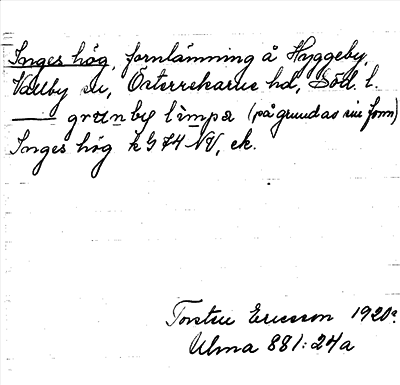 Inges hög, fornlämning å Hyggeby,
Vallby sn, Österrekarne hd, Södl.
— grɯnby lìmpa (på grund av sin form)
Inges hög k G 74 NV, ek.
Torsten Ericsson 1920.
Ulma 881:24a